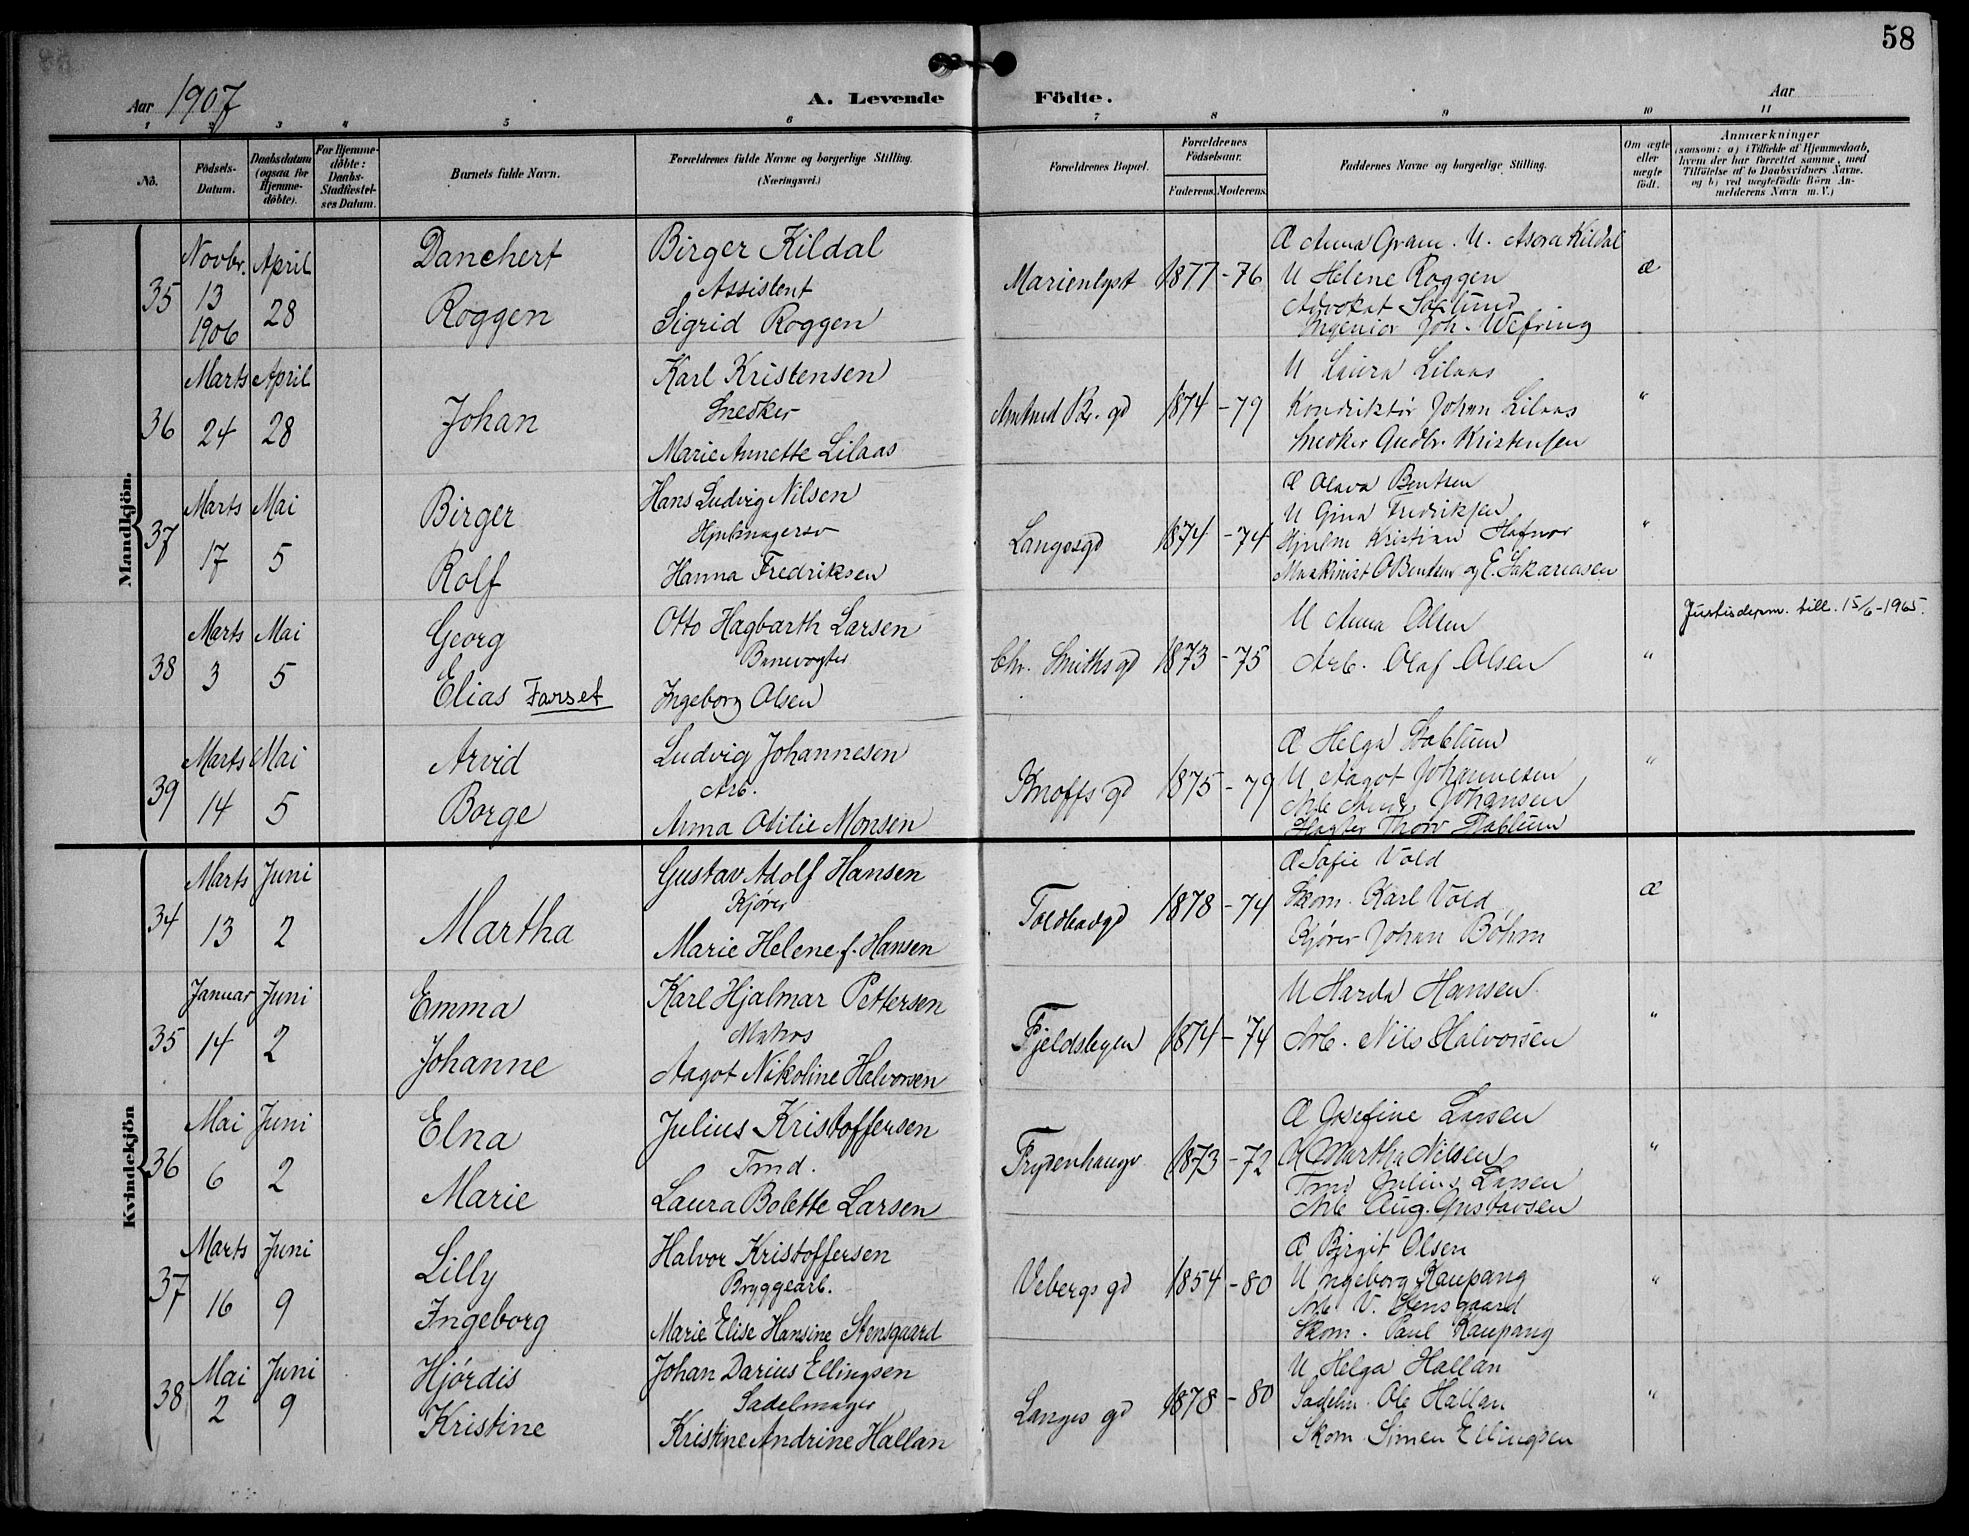 58
Aar 1907
A. Levende Födte.
Aar
1 2 3 4 5 6 7 8 9 10 11
No.
Födsels-Datum.
Daabsdatum (ogsaa for Hjemme-döbte).
For Hjemme-döbte: Daabs-Stadfæstel-ses Datum.
Barnets fulde Navn.
Forældrenes fulde Navne og borgerlige Stilling. (Næringsvei.)
Forældrenes Bopæl.
Forældrenes Födselsaar.
Faderens. Moderens.
Faddernes Navne og borgerlige Stilling.
Om ægte eller uægte födt.
Anmærkninger
(saasom: a) i Tilfælde af Hjemmedaab,
hvem der har forrettet samme, med
Tilföielse af to Daabsvidners Navne.
og b) ved uægtefödte Börn An-
melderens Navn m. V.)
Mandkjön.
35
Novbr. 13 1906
April 28
Danchert
Roggen
Birger Kildal
Assistent
Sigrid Roggen
Marienlyst
1877 - 76
Æ Anna Gram. U. Asora Kildal
U Helene Roggen
Advokat
Ingeniör Joh. Wefring
æ
36
Marts 24
April 28
Johan
Karl Kristensen
Snedker
Marie Annette Lilaas
Amtmd Bl. gd
1874 - 79
U Laura Lilaas
Konduktör Johan Lilaas
Snedker Gudbr. Kristensen
"
37
Marts 17
Mai 5
Birger
Rolf
Hans Ludvig Nilsen
Hjulmagersv
Hanna Fredriksen
Langesgd
1874 - 74
Æ Olava Bentsen
U Gina Fredriksen
Hjulm Kristian Hafnor
Maskinist O Bentsen og E. Sakariasen
"
38
Marts 3
Mai 5
Georg
Elias Farset
Otto Hagbarth Larsen
Banevogter
Ingeborg Olsen
Chr. Smiths gd
1873 - 75
U Anna Olsen
Arb. Olaf Olsen
"
Justisdepm. till. 15/6-1965.
39
Marts 14
Mai 5
Arvid
Borge
Ludvig Johannesen
Arb.
Anna Otilie Monsen
Knoffs gd
1875 - 79
Æ Helga Stablum
U Aagot Johannesen
Arb Johansen
Thorv Stablum
"
Kvindekjön
34
Marts 13
Juni 2
Martha
Gustav Adolf Hansen
Kjörer
Marie Helene f. Hansen
Toldbodgd
1878 - 74
Æ Sofie Vold
Skom. Karl Vold
Kjörer Johan Böhm
æ
35
Januar 14
Juni 2
Emma
Johanne
Karl Hjalmar Pettersen
Matros
Aagot Nikoline Halvorsen
Fjeldslegen
1874 - 74
U Harda Hansen
Arb. Nils Halvorsen
"
36
Mai 6
Juni 2
Elna
Marie
Julius Kristoffersen
Tmd.
Laura Bolette Larsen
Frydenhaugv
1873 - 72
Æ Josefine Larsen
Martha Nilsen
Tmd Julius Larsen
Arb Aug. Gustavsen
"
37
Marts 16
Juni 9
Lilly
Ingeborg
Halvor Kristoffersen
Bryggearb.
Marie Elise Hansine Stensgaard
Vebergs gd
1854 - 80
Æ Birgit Olsen
U Ingeborg Kaupang
Arb V. Stensgaard
Skom. Paul Kaupang
"
38
Mai 2
Juni 9
Hjördis
Kristine
Johan Darius Ellingsen
Sadelmager
Kristine Andrine Hallan
Langes gd
1878 - 80
U Helga Hallan
Sadelm. Ole Hallan
Skom. Simen Ellingsen
"